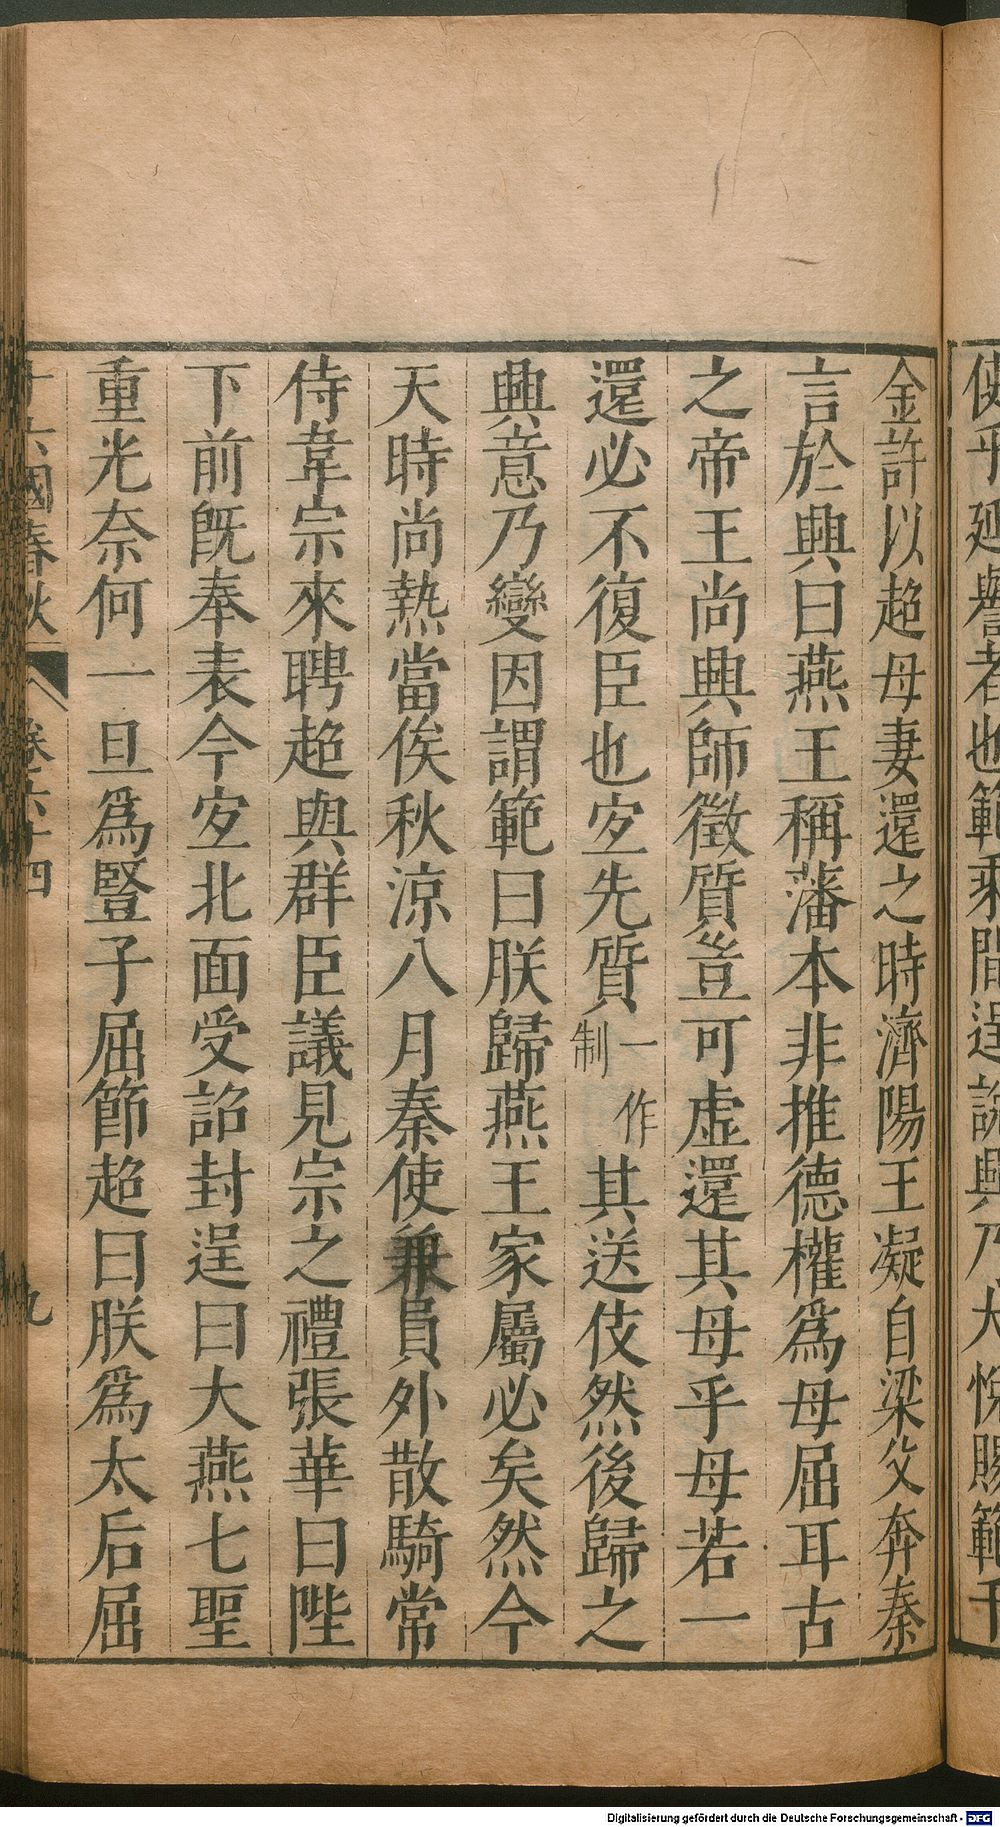 使乎延譽者也範乘間逞說興乃大悅賜範千
金許以超母妻還之時濟陽王凝自梁父奔秦
言於興曰燕王稱藩本非推德權爲母屈耳古
之帝王尚興師徵質豈可虛還其母乎母若一
還必不復臣也宐先質一作制其送伎然後歸之
興意乃變因謂範曰朕歸燕王家屬必矣然今
天時尚熱當俟秋涼八月秦使兼員外散騎常
侍韋宗來聘超與群臣議見宗之禮張華曰陛
下前旣奉表今宐北面受詔封逞曰大燕七聖
重光奈何一旦爲豎子屈節超曰朕爲太后屈
十六國春秋 卷六十四 九
Digitalisierung gefördert durch die Deutsche Forschungsgemeinschaft - DFG